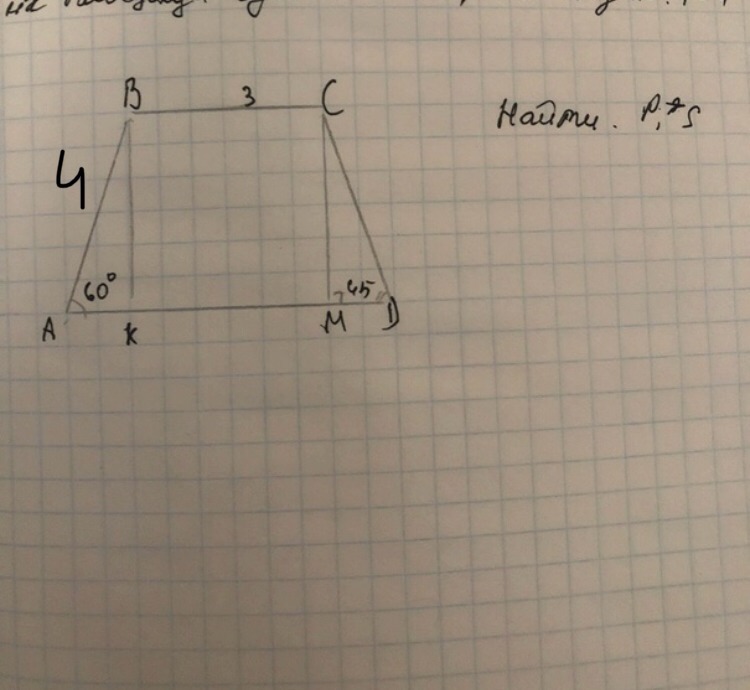 B 3 C
Найти. P, *S
4
60° 45
A K M D